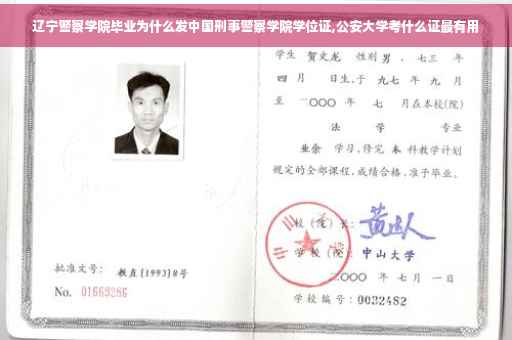 辽宁警察学院毕业为什么发中国刑事警察学院学位证,公安大学考什么证最有用
学生 贺文龙 性别 男 、七三 年
四 月 日生,于 九七 年 九 月
至 二〇〇〇 年 七 月在本校(院)
法 学 专业
业余 学习,修完 本 科教学计划
规定的全部课程,成绩合格,准予毕业。
校(院)长:
学校(院): 中山大学
二〇〇〇 年 七 月 一 日
批准文号: 教直[1993]8号
No. 01669286
学校编号: 0032482